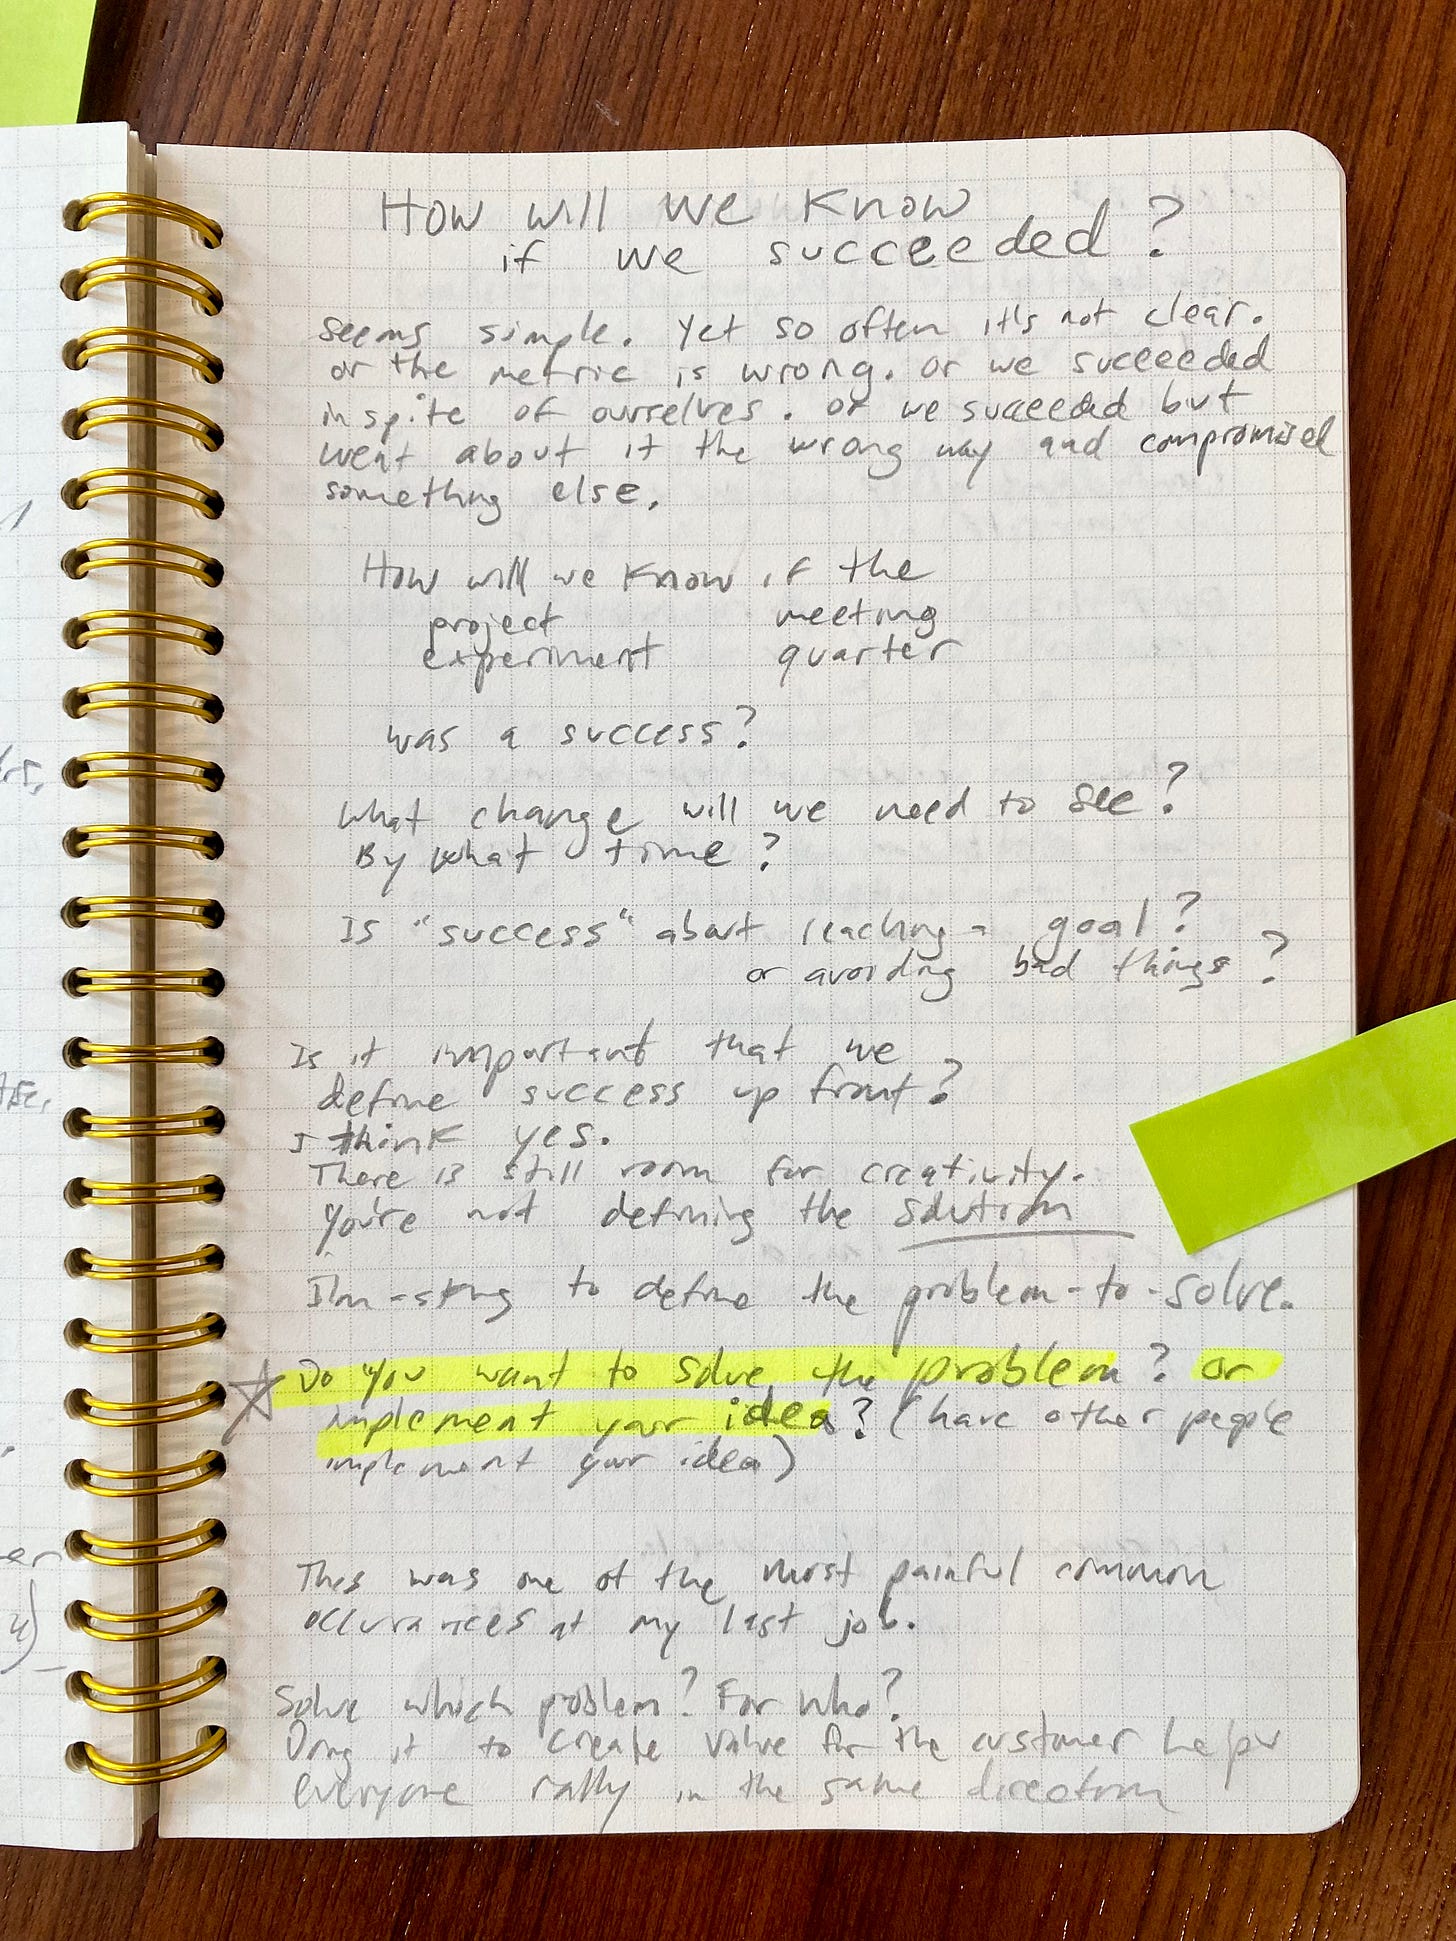 How will we know
if we succeeded?
seems simple. Yet so often it's not clear.
or the metric is wrong. or we succeeded
in spite of ourselves. or we succeeded but
went about it the wrong way and compromised
something else.
How will we know if the
project meeting
experiment quarter
was a success?
What change will we need to see?
By what time?
Is "success" about reaching a goal?
or avoiding bad things?
Is it important that we
define success up front?
I think yes.
There is still room for creativity.
You're not defining the solution
to define the problem-to-solve.
Do you want to solve the problem? or
implement your idea? (have other people
implement your idea)
This was one of the most painful common
occurances at my last job.
Solve which problem? For who?
Doing it to create value for the customer helps
everyone rally in the same direction
er